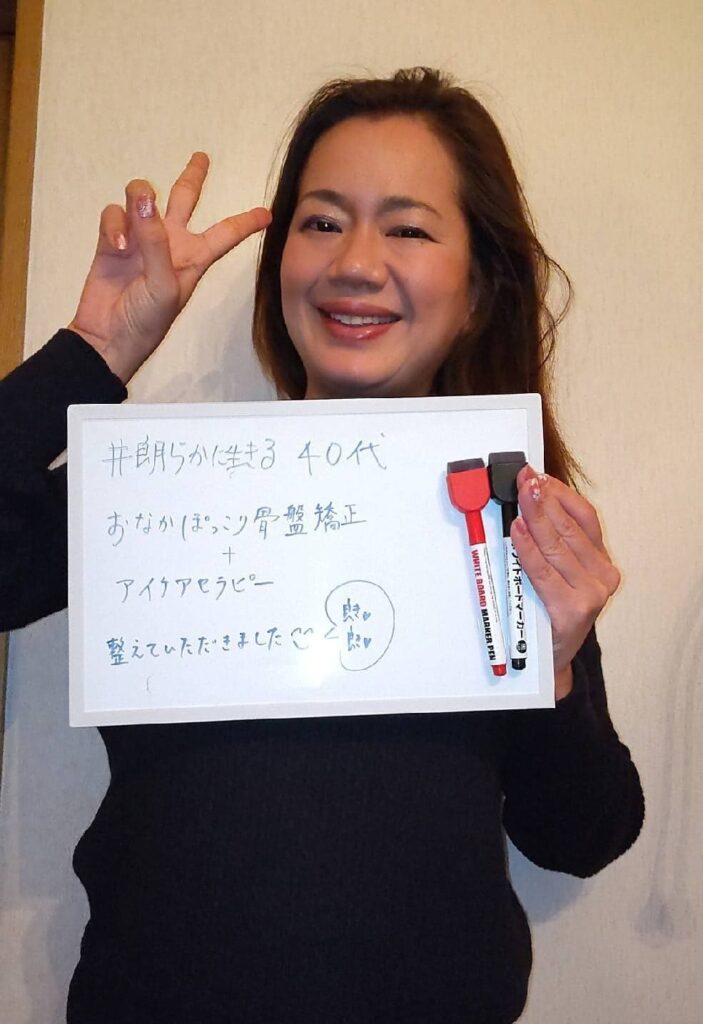 #朗らかに生きる 40代
おなかぽっこり骨盤矯正
+
アイケアセラピー
整えていただきました
WHITE BOARD MARKER PEN
ワイトボードマーカー